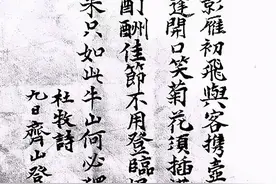 影雁初飛與客携壺
逢開口笑菊花須插
酊酬佳節不用登臨
来只如此牛山何必
杜牧詩
九日齊山登